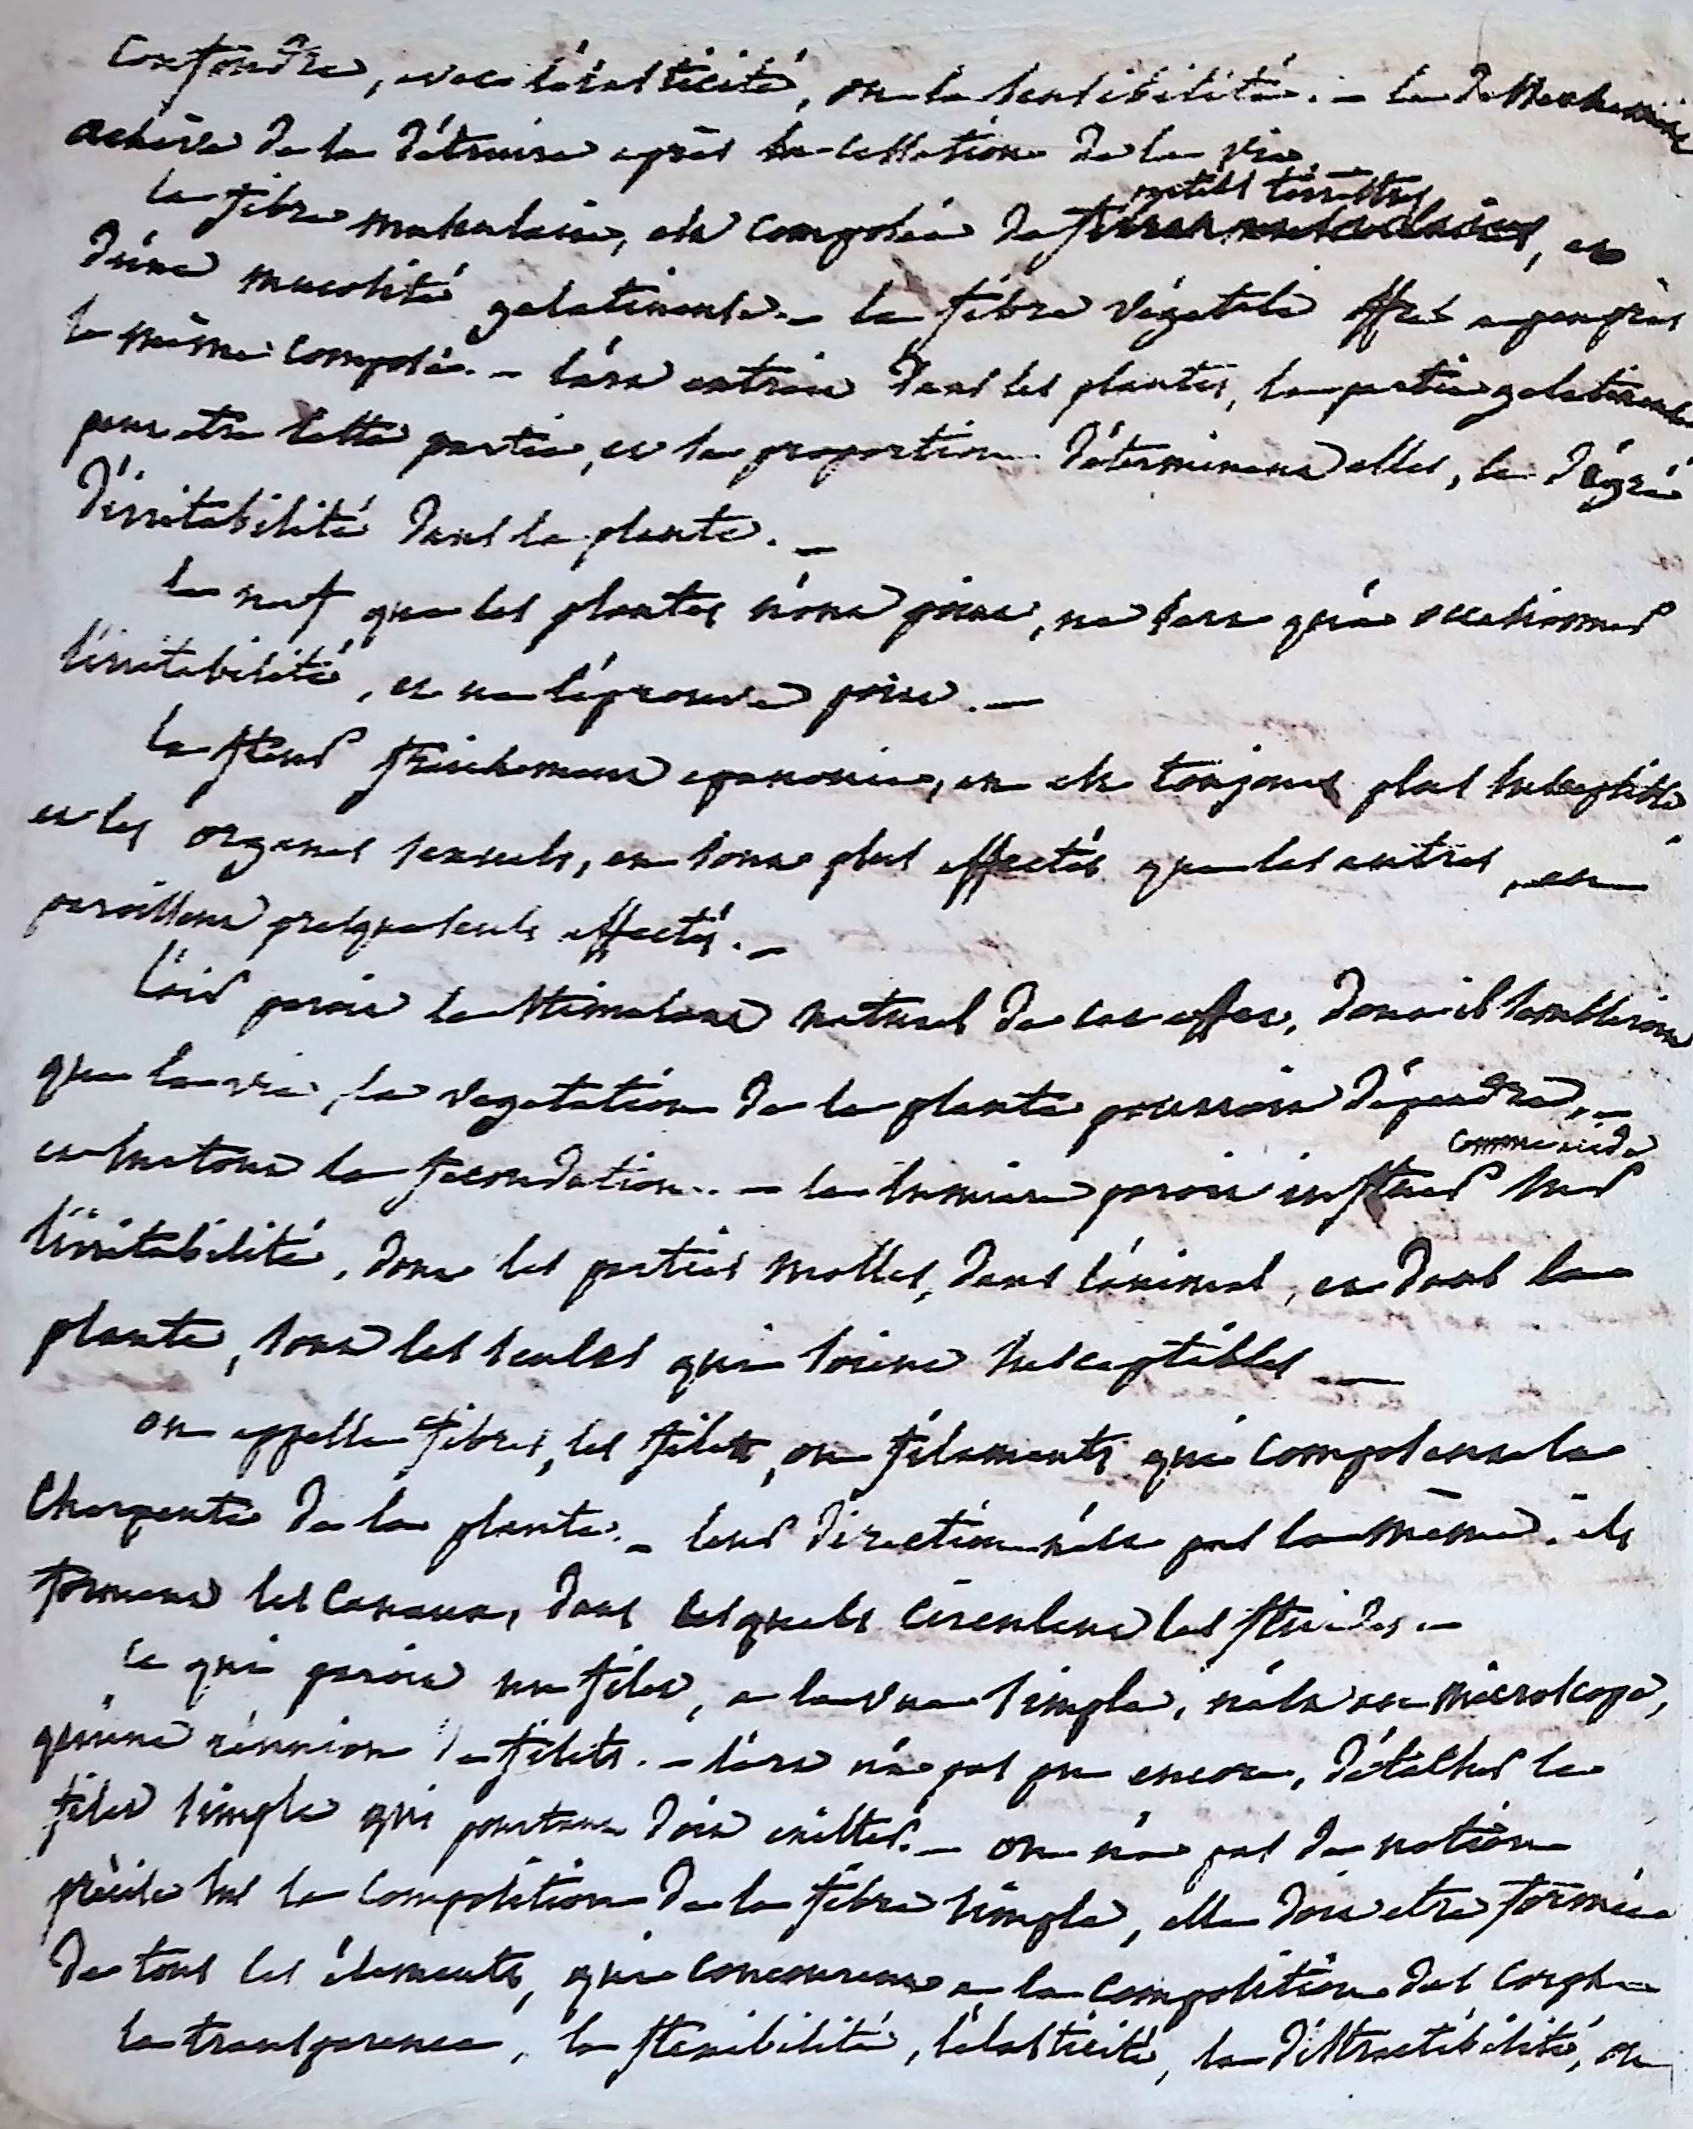 confondre, avec l'élasticité, ou la sensibilité. – le desséchement
achève de la détruire après la cessation de la vie.
parties terrestres
la fibre musculaire, est composée de fibres musculaires, et
d'une mucosité gelatineuse. – la fibre végétale offre a peu près
le même composé. – l'art extrait dans les plantes, la partie gelatineuse
peut etre cette partie, et sa proportion déterminent elles, le dégré
d'irritabilité dans la plante. –
le nerf que les plantes n'ont point, ne sert qu'a occasionner
l'irritabilité, et ne l'éprouve point. –
la fleur fraichement epanouie, en est toujours plus susceptible,
et les organes sexuels, en sont plus affectés que les autres, en
paroissent presque seuls affectés. –
l'air paroit le stimulant naturel de cet effet, dont il sembleroit
que la vie, la vegetation de la plante pourroit dépendre, –
et surtout la fecondation. – la lumiere paroit influer sur
comme acide
l'irritabilité, dont les parties molles, dans l'animal, et dans la
plante, sont les seules qui soient susceptibles –
on appelle fibres, les filets, ou filaments qui composent la
charpente de la plante. – leur direction n'est pas la même. ils
forment les canaux, dans lesquels circulent les fluides. –
ce qui paroit un filet, a la vue simple, n'est au microscope,
qu'une réunion de filets. – l'art n'a pas pu encore, détacher le
filet simple qui pourtant doit exister. – on n'a pas de notion
précise sur la composition de la fibre simple, elle doit etre formée
de tous les élements, qui concourent a la composition des corps –
la transparence, la flexibilité, l'élasticité, la distractibilité, ou